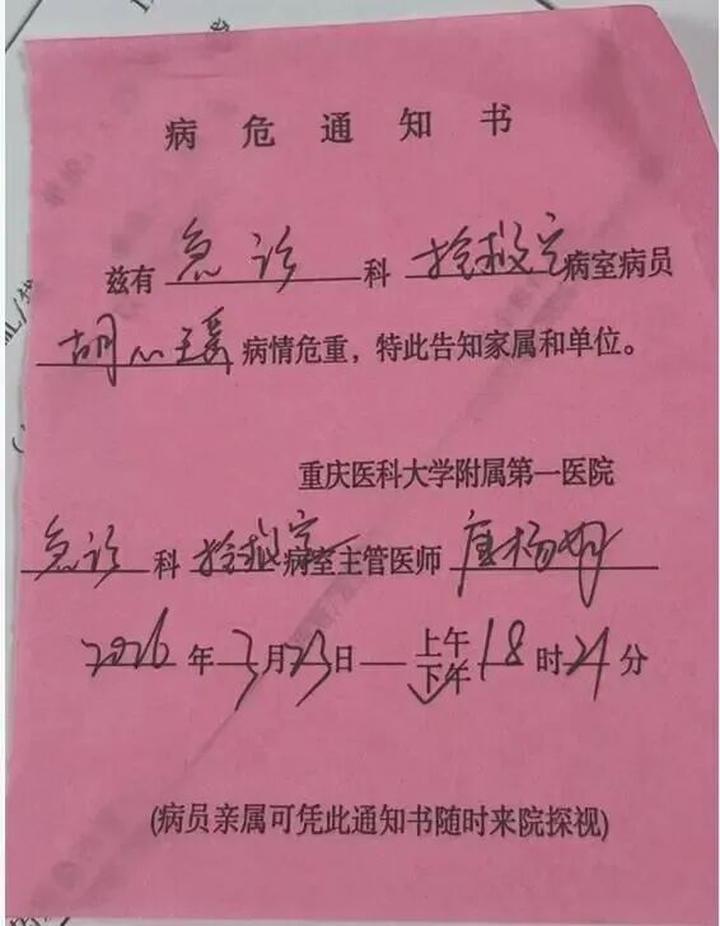 病危通知书
兹有 急诊 科 抢救室 病室病员
胡心瑶 病情危重，特此告知家属和单位。
重庆医科大学附属第一医院
急诊 科 抢救室 病室主管医师 唐杨
2026 年 3 月 23 日 — 上午
下午 18 时 24 分
(病员亲属可凭此通知书随时来院探视)